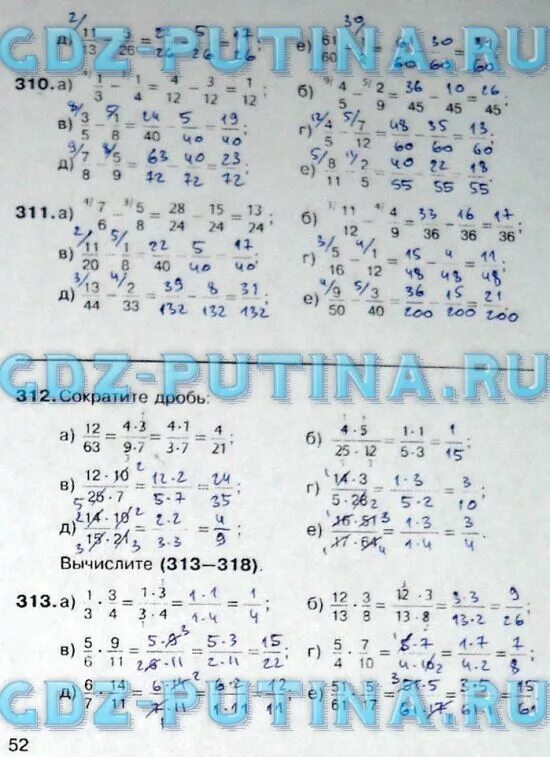 GDZ-PUTINA.RU
д) 11/13 - 5/26 = 22/26 - 5/26 = 17/26;
310. а) 1/3 - 1/4 = 4/12 - 3/12 = 1/12;
б) 4/5 - 2/9 = 36/45 - 10/45 = 26/45;
в) 3/5 - 1/8 = 24/40 - 5/40 = 19/40
г) 4/5 - 7/12 = 48/60 - 35/60 = 13/60;
д) 7/8 - 5/9 = 63/72 - 40/72 = 23/72
е) 8/11 - 2/5 = 40/55 - 22/55 = 18/55;
311. а) 7/6 - 5/8 = 28/24 - 15/24 = 13/24;
б) 11/12 - 4/9 = 33/36 - 16/36 = 17/36;
в) 11/20 - 1/8 = 22/40 - 5/40 = 17/40
г) 5/16 - 1/12 = 15/48 - 4/48 = 11/48;
д) 13/44 - 2/33 = 39/132 - 8/132 = 31/132
е) 9/50 - 3/40 = 36/200 - 15/200 = 21/200
GDZ-PUTINA.RU
312. Сократите дробь:
а) 12/63 = 4·3/9·7 = 4·1/3·7 = 4/21;
б) 4·5/25·12 = 1·1/5·3 = 1/15;
в) 12·10/25·7 = 12·2/5·7 = 24/35
г) 14·3/5·28 = 1·3/5·2 = 3/10
д) 14·10/15·21 = 2·2/3·3 = 4/9;
е) 16·51/17·64 = 1·3/1·4 = 3/4.
Вычислите (313—318).
313. а) 1/3 · 3/4 = 1·3/3·4 = 1·1/1·4 = 1/4;
б) 12/13 · 3/8 = 12·3/13·8 = 3·3/13·2 = 9/26
в) 5/6 · 9/11 = 5·9/6·11 = 5·3/2·11 = 15/22;
г) 5/4 · 7/10 = 5·7/4·10 = 1·7/4·2 = 7/8
д) 6/7 · 14/11 = 6·14/7·11 = 6·2/1·11 = 12/11
е) 51/61 · 5/17 = 51·5/61·17 = 3·5/61·1 = 15/61
GDZ-PUTINA.RU
52